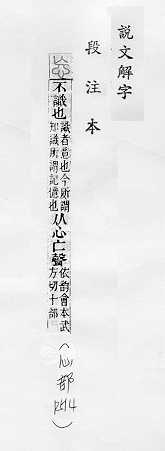 說文解字
段注本
不識也識者意也今所謂知識所謂記憶也从心亡聲依韵會本武方切十部(心部)